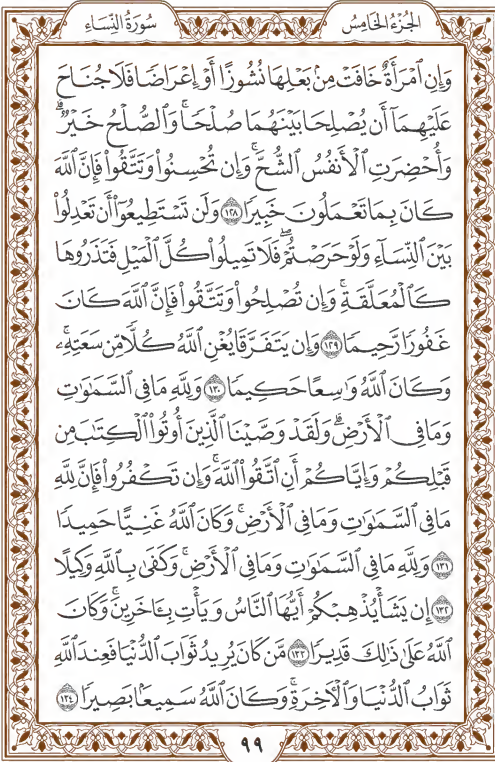 الجُزْءُ الخَامِسُ
سُورَةُ النِّسَاءِ
وَإِنِ ٱمْرَأَةٌ خَافَتْ مِنۢ بَعْلِهَا نُشُوزًا أَوْ إِعْرَاضًا فَلَا جُنَاحَ
عَلَيْهِمَآ أَن يُصْلِحَا بَيْنَهُمَا صُلْحًا ۚ وَٱلصُّلْحُ خَيْرٌ ۗ
وَأُحْضِرَتِ ٱلْأَنفُسُ ٱلشُّحَّ ۚ وَإِن تُحْسِنُوا۟ وَتَتَّقُوا۟ فَإِنَّ ٱللَّهَ
كَانَ بِمَا تَعْمَلُونَ خَبِيرًا ١٢٨ وَلَن تَسْتَطِيعُوٓا۟ أَن تَعْدِلُوا۟
بَيْنَ ٱلنِّسَآءِ وَلَوْ حَرَصْتُمْ ۖ فَلَا تَمِيلُوا۟ كُلَّ ٱلْمَيْلِ فَتَذَرُوهَا
كَٱلْمُعَلَّقَةِ ۚ وَإِن تُصْلِحُوا۟ وَتَتَّقُوا۟ فَإِنَّ ٱللَّهَ كَانَ
غَفُورًا رَّحِيمًا ١٢٩ وَإِن يَتَفَرَّقَا يُغْنِ ٱللَّهُ كُلًّا مِّن سَعَتِهِۦ ۚ
وَكَانَ ٱللَّهُ وَٰسِعًا حَكِيمًا ١٣٠ وَلِلَّهِ مَا فِى ٱلسَّمَٰوَٰتِ
وَمَا فِى ٱلْأَرْضِ ۗ وَلَقَدْ وَصَّيْنَا ٱلَّذِينَ أُوتُوا۟ ٱلْكِتَٰبَ مِن
قَبْلِكُمْ وَإِيَّاكُمْ أَنِ ٱتَّقُوا۟ ٱللَّهَ ۚ وَإِن تَكْفُرُوا۟ فَإِنَّ لِلَّهِ
مَا فِى ٱلسَّمَٰوَٰتِ وَمَا فِى ٱلْأَرْضِ ۚ وَكَانَ ٱللَّهُ غَنِيًّا حَمِيدًا
١٣١ وَلِلَّهِ مَا فِى ٱلسَّمَٰوَٰتِ وَمَا فِى ٱلْأَرْضِ ۚ وَكَفَىٰ بِٱللَّهِ وَكِيلًا
١٣٢ إِن يَشَأْ يُذْهِبْكُمْ أَيُّهَا ٱلنَّاسُ وَيَأْتِ بِـَٔاخَرِينَ ۚ وَكَانَ
ٱللَّهُ عَلَىٰ ذَٰلِكَ قَدِيرًا ١٣٣ مَّن كَانَ يُرِيدُ ثَوَابَ ٱلدُّنْيَا فَعِندَ ٱللَّهِ
ثَوَابُ ٱلدُّنْيَا وَٱلْـَٔاخِرَةِ ۚ وَكَانَ ٱللَّهُ سَمِيعًۢا بَصِيرًا ١٣٤
٩٩